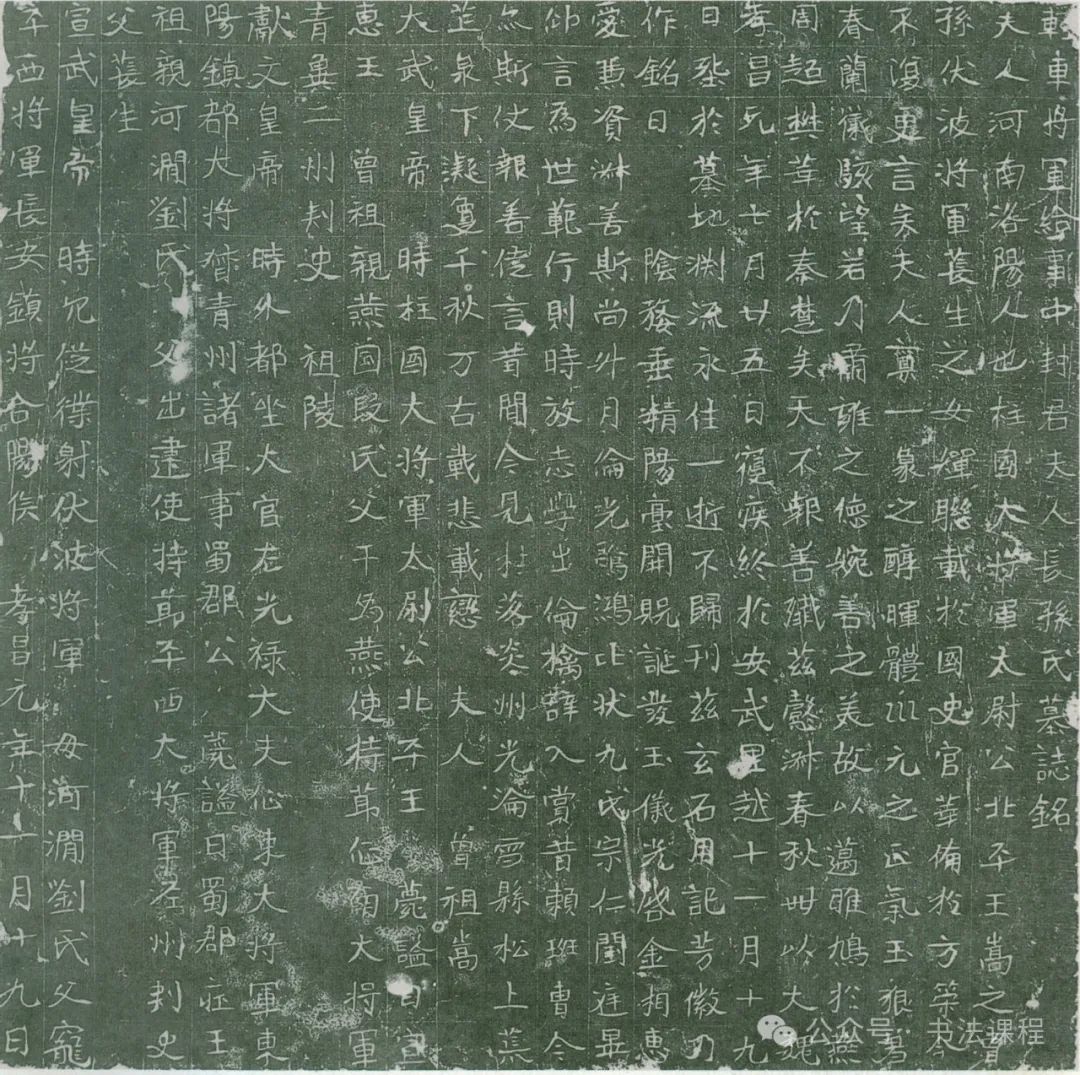 車將軍給事中封君夫人長孫氏墓誌銘
夫人河南洛陽人也柱國大將軍太尉公北平王嵩之曾
孫伏波將軍萇生之女輝聯載於國史官華備於方策今
不復更言矣夫人稟一象之醇暉體三元之正氣玉狼
春蘭儀駭望若乃肅雍之德婉善之美故以邁雎鳩於燕
周超樛草於秦楚矣天不報善殲茲懿淋春秋卌以大魏
孝昌元年七月廿五日寑疾終於安武里越十一月十九
日塟於墓地渊流永住一逝不歸刊茲玄石用記芳徽乃
作銘曰 陰婺垂精陽臺開貺誕發玉儀光啓金相惠
愛慈資淋善斯尚外月倫光鶩鴻比状九氏宗仁閨庭是
仰言為世範行則時放志學出倫檎辭入賞昔賴班曹今
亦斯仗報善徒言昔聞今見柱落炎州光淪雪縣松上蒸
芷泉下凝夐千秋万古載悲載戀 夫人 曾祖嵩
大武皇帝 時柱國大將軍太尉公北平王 薨謚曰宣
惠王 曾祖親燕國段氏父干為燕使持節征南大將軍
青冀二州刾史 祖陵
獻文皇帝 時外都坐大官左光禄大夫征東大將軍東
陽鎮都大將督青州諸軍事蜀郡公 薨謚曰蜀郡莊王
祖親河澗劉氏 父出建使持節平西大將軍涇州刾史
父萇生
宣武皇帝 時冗從僕射伏波將軍 母河澗劉氏父寵
平西將軍長安鎮將合陽侯 孝昌元年十一月十九日
公众号 · 书法课程